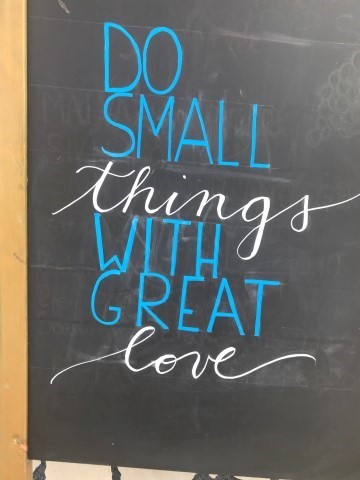 DO
SMALL
things
WITH
GREAT
love